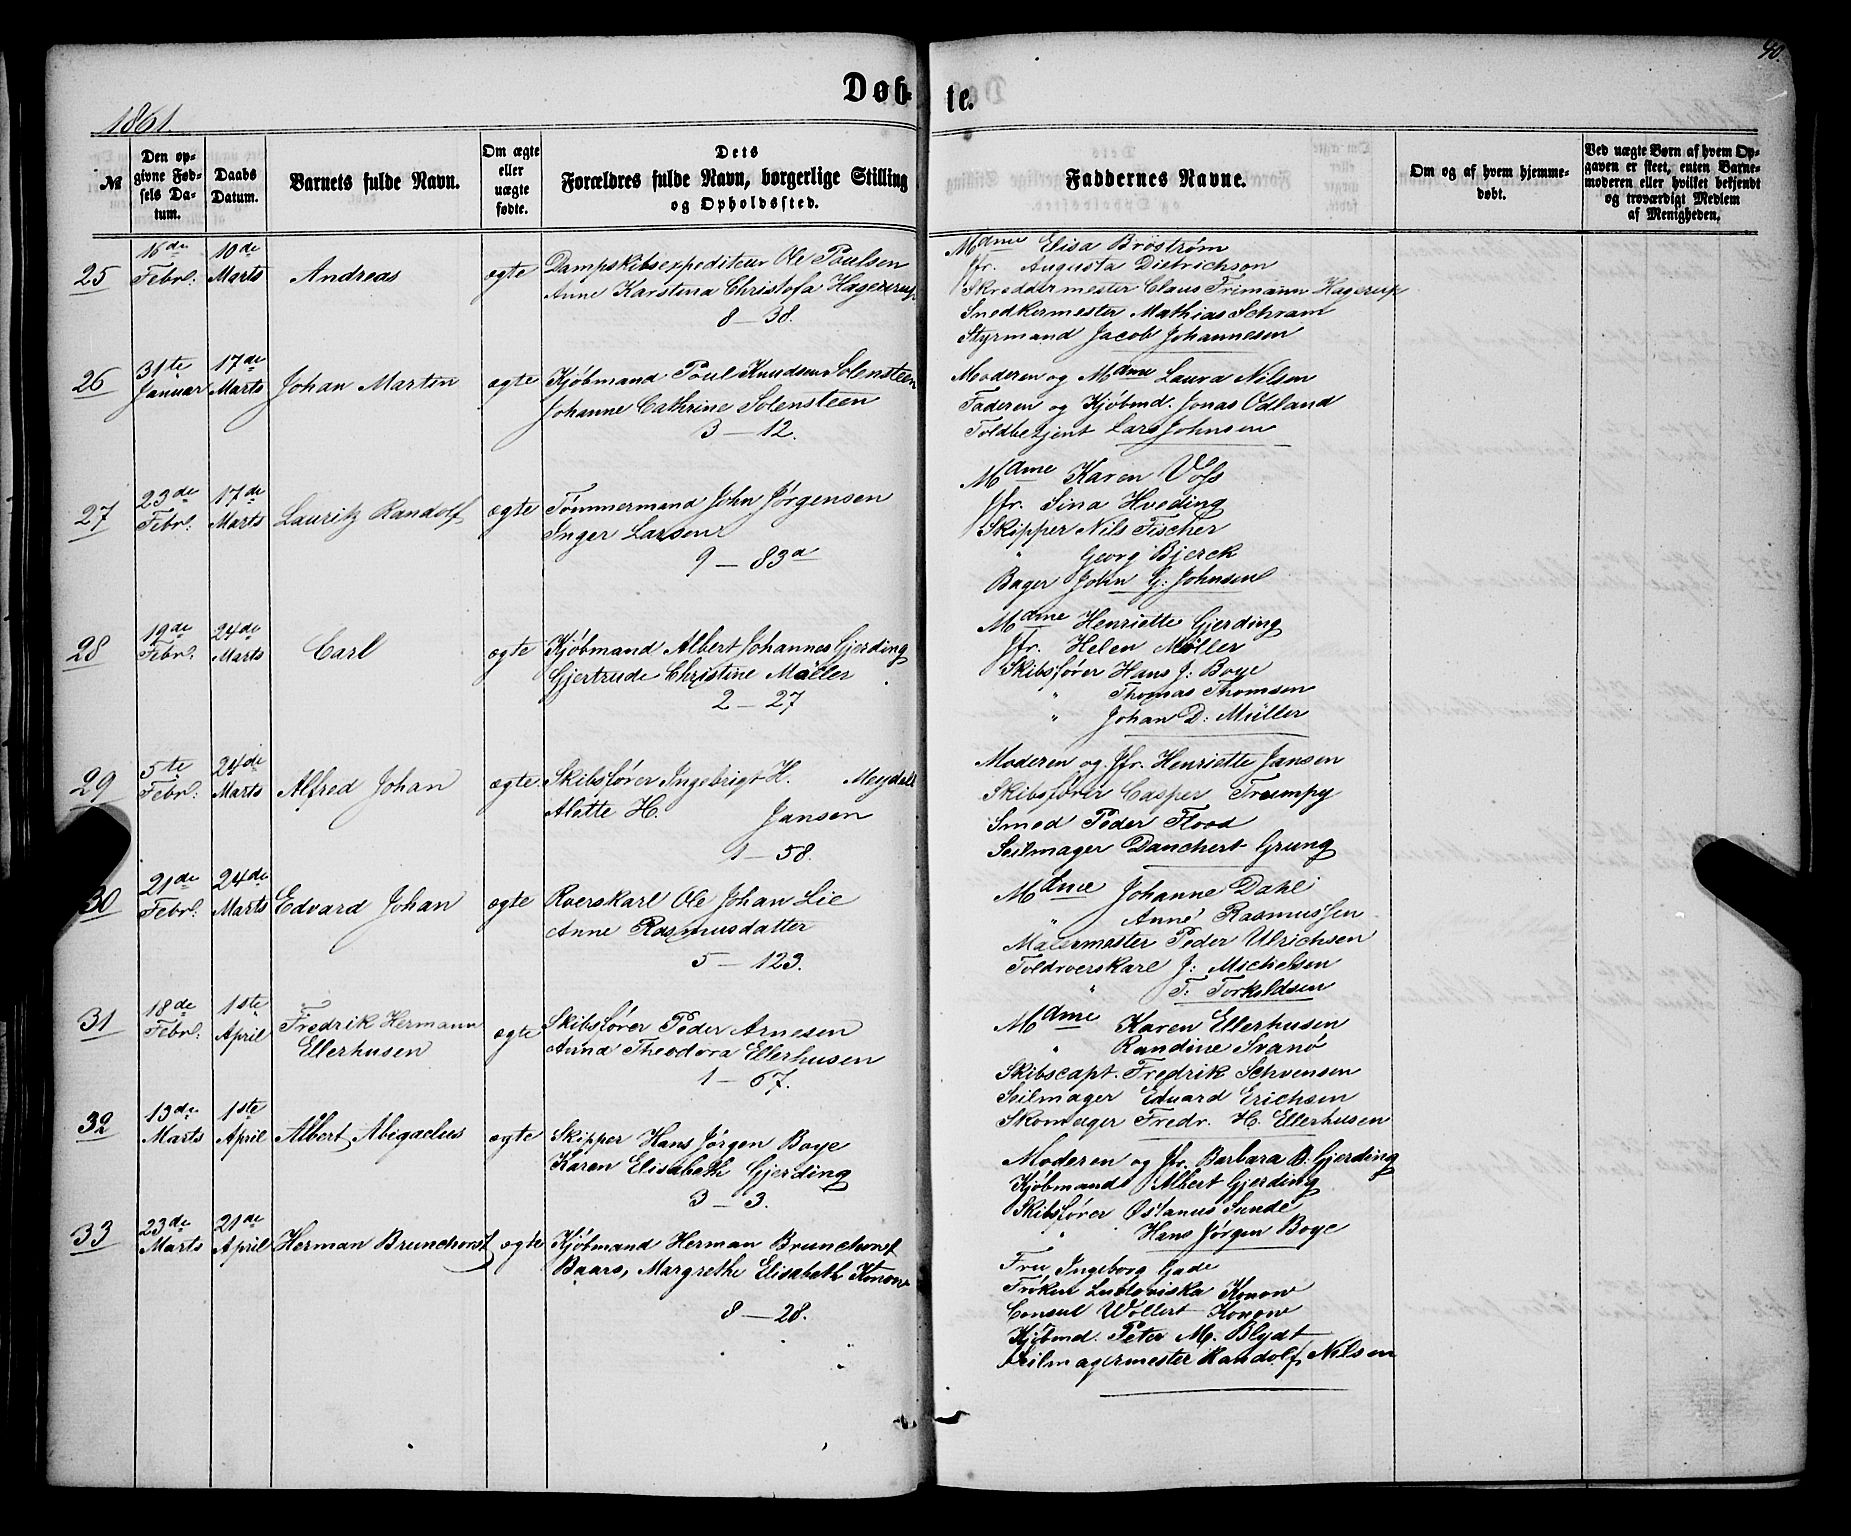 Døb-
te.
40.
1861.
№
Den op-
givne Fød-
sels Da-
tum.
Daabs
Datum.
Barnets fulde Navn.
Om ægte
eller
uægte
fødte.
Dets
Forældres fulde Navn, borgerlige Stilling
og Opholdssted.
Faddernes Navne.
Om og af hvem hjemme-
døbt.
Ved uægte Børn af hvem Op-
gaven er skeet, enten Barne-
moderen eller hvilket bekjendt
og troværdigt Medlem
af Menigheden.
25
16de
Febrl:
10de
Marts
Andreas
ægte
Dampskibsexpediteur Ole Poulsen
Anne Karstina Christofa Hagerup
8 — 38.
Mdme Elisa Brøstrøm
Jfr. Augusta Dietrichson
Skreddermester Claus Frimann Hagerup
Snedkermester Mathias Schram
Styrmand Jacob Johannesen
26
31te
Januar
17de
Marts
Johan Martin
ægte
Kjøbmand Poul Knudsen Solensteen
Johanne Cathrine Solensteen
3 — 12.
Moderen og Mdme Laura Nilsen
Faderen og Kjøbmd. Jonas Odland
Toldbetjent Lars Johnsen
27
23de
Febrl:
17de
Marts
Lauritz Randolf
ægte
Tømmermand John Jørgensen
Inger Larsen
9 — 83a
Mdme Karen Voss
Jfr. Sina Hveding
Skipper Nils Fischer
" Georg Bjerck
Bager John G: Johnsen
28
19de
Febrl.
24de
Marts
Carl
ægte
Kjøbmand Albert Johannes Gjerding
Gjertrude Christine Møller
2 — 27
Mdme Henriette Gjerding
Jfr. Helen Møller
Skibsfører Hans J: Boye
" Thomas Thomsen
" Johan D: Müller
29
5te
Febrl:
24de
Marts
Alfred Johan
ægte
Skibsfører Ingebrigt H. Meydell
Alette H. Jansen
1 — 58.
Moderen og Jfr. Henriette Jansen
Skibsfører Casper Trumpy
Smed Peder Flood
Seilmager Danchert Grung
30
21de
Febrl.
24de
Marts
Edvard Johan
ægte
Roerskarl Ole Johan Lie
Anne Rasmusdatter
5 — 123.
Mdme Johanne Dahl
" Anne Rasmussen
Malermester Peder Ulrichsen
Toldroerskarl J: Michelsen
" T: Torkeldsen
31
18de
Febrl:
1ste
April
Fredrik Hermann
Ellerhusen
ægte
Skibsfører Peder Arnesen
Anna Theodora Ellerhusen
1 — 67.
Mdme Karen Ellerhusen
" Randine Svanø
Skibscapt. Fredrik Schvensen
Seilmager Eduard Erichsen
Skomager Fredr. H. Ellerhusen
32
13de
Marts
1ste
April
Albert Abigaelus
ægte
Skipper Hans Jørgen Boye
Karen Elisabeth Gjerding
3 — 3.
Moderen og Jfr. Barbara B: Gjerding
Kjøbmand Albert Gjerding
Skibsfører Østanus Sunde
" Hans Jørgen Boye
33
23de
Marts
21de
April
Herman Brunchorst
ægte
Kjøbmand Herman Brunchorst
Baars, Margrethe Elisabeth Konow
8 — 28.
Fru Ingeborg Gade
Frøken Ludoviska Konow
Consul Wollert Konow
Kjøbmd. Peter M. Blydt
Seilmagermester Randolf Nilsen